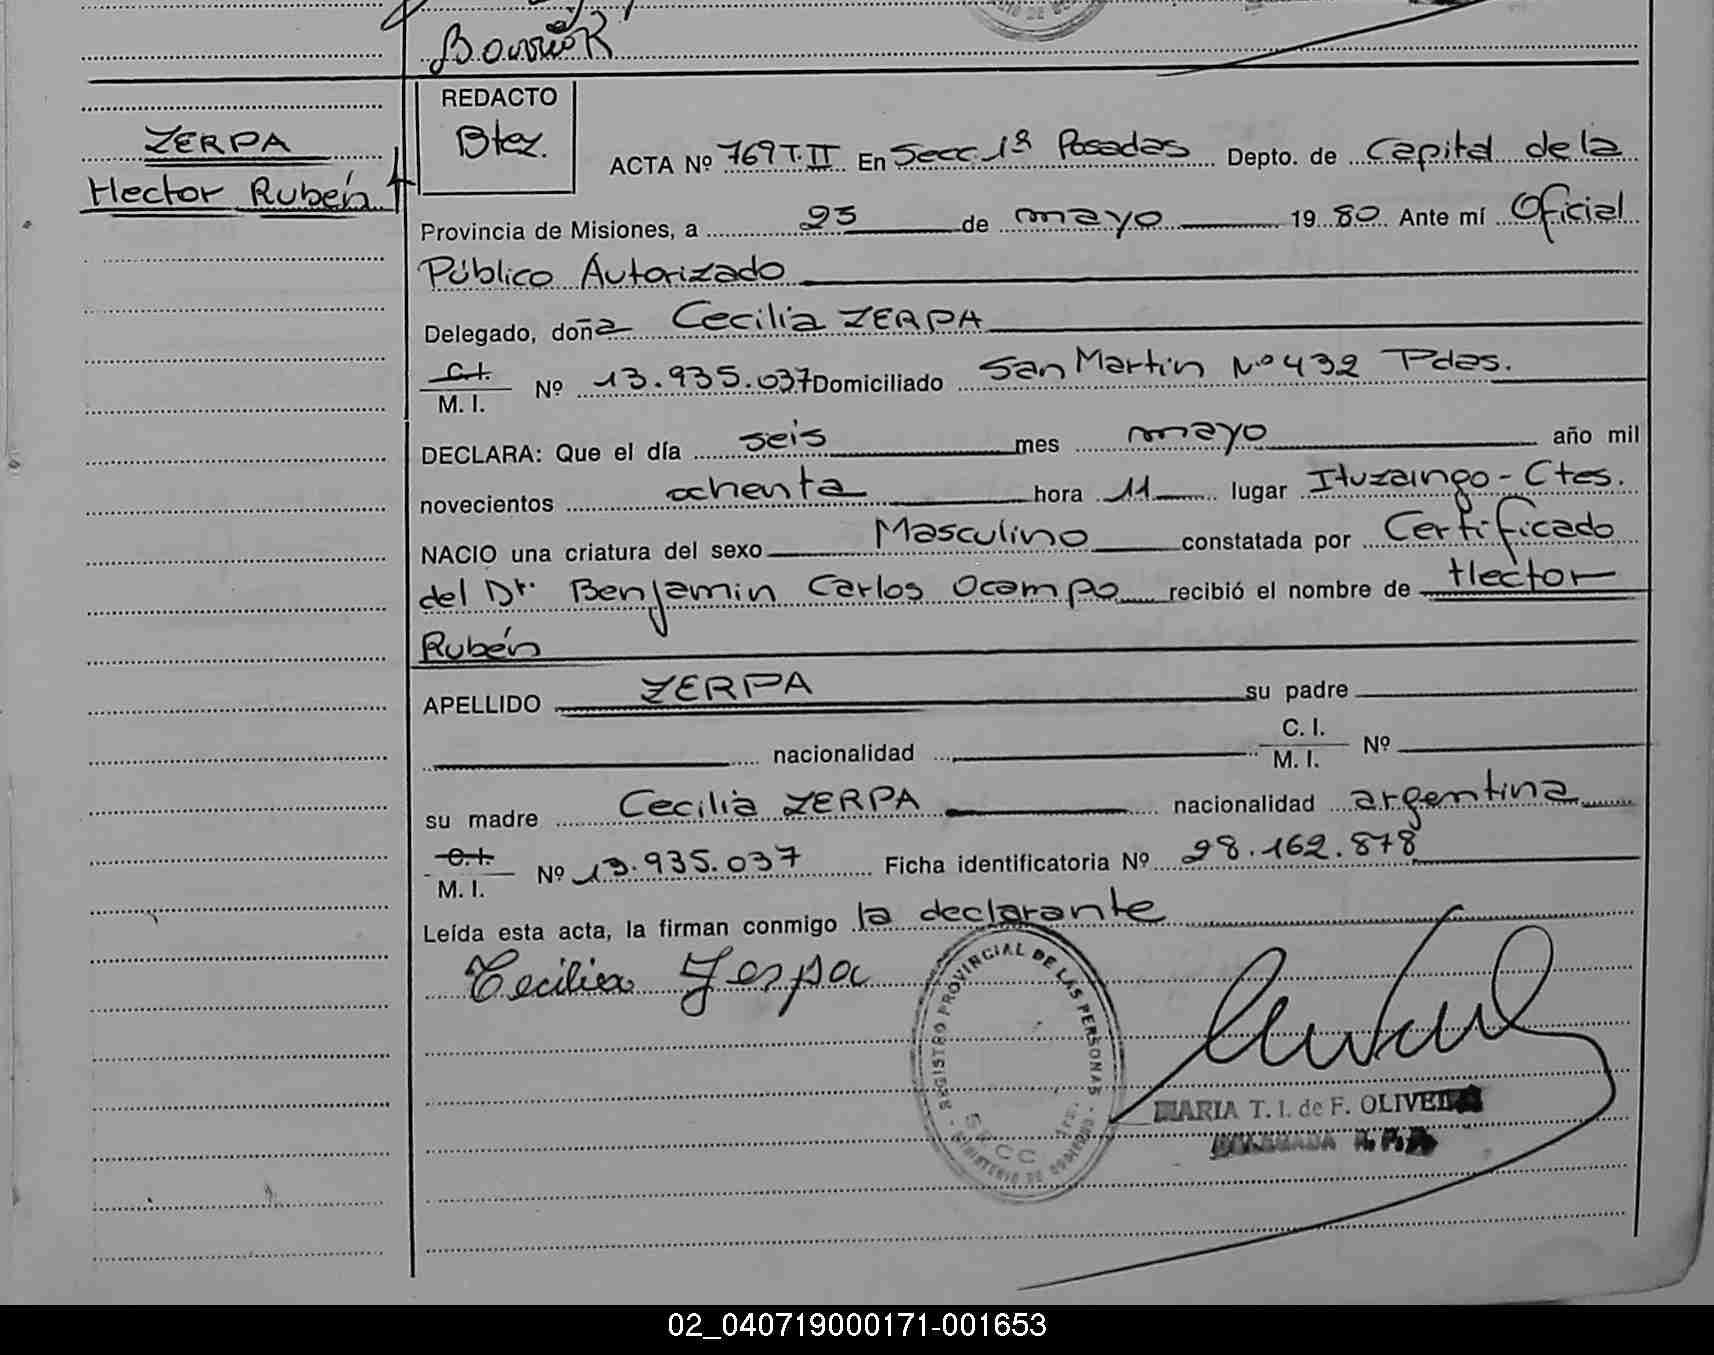 REDACTO
Btez.
ZERPA
Hector Rubén
ACTA Nº 769 T.II En Secc. 1ª Posadas Depto. de Capital de la
Provincia de Misiones, a 23 de mayo 1980 Ante mí Oficial
Público Autorizado
Delegado, doña Cecilia ZERPA
C.I.
M. I. Nº 13.935.037 Domiciliado San Martin Nº 432 Pdas.
DECLARA: Que el día seis mes mayo año mil
novecientos ochenta hora 11 lugar Ituzaingo - Ctes.
NACIO una criatura del sexo Masculino constatada por Certificado
del Dr. Benjamin Carlos Ocampo recibió el nombre de Hector
Rubén
APELLIDO ZERPA su padre
nacionalidad C. I.
M. I. Nº
su madre Cecilia ZERPA nacionalidad argentina
C.I.
M. I. Nº 13.935.037 Ficha identificatoria Nº 28.162.878
Leída esta acta, la firman conmigo la declarante
Cecilia Zerpa
REGISTRO PROVINCIAL DE LAS PERSONAS
MINISTERIO DE GOBIERNO
SECC 1ra.
MARIA T. I. de F. OLIVEIRA
DELEGADA R. P. P.
02_040719000171-001653